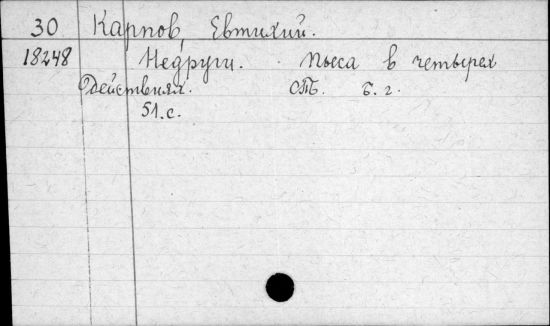 30 Карпов, Евтихий.
18248 Недруги. Пьеса в четырех
действиях. СПБ. б. г.
51. с.